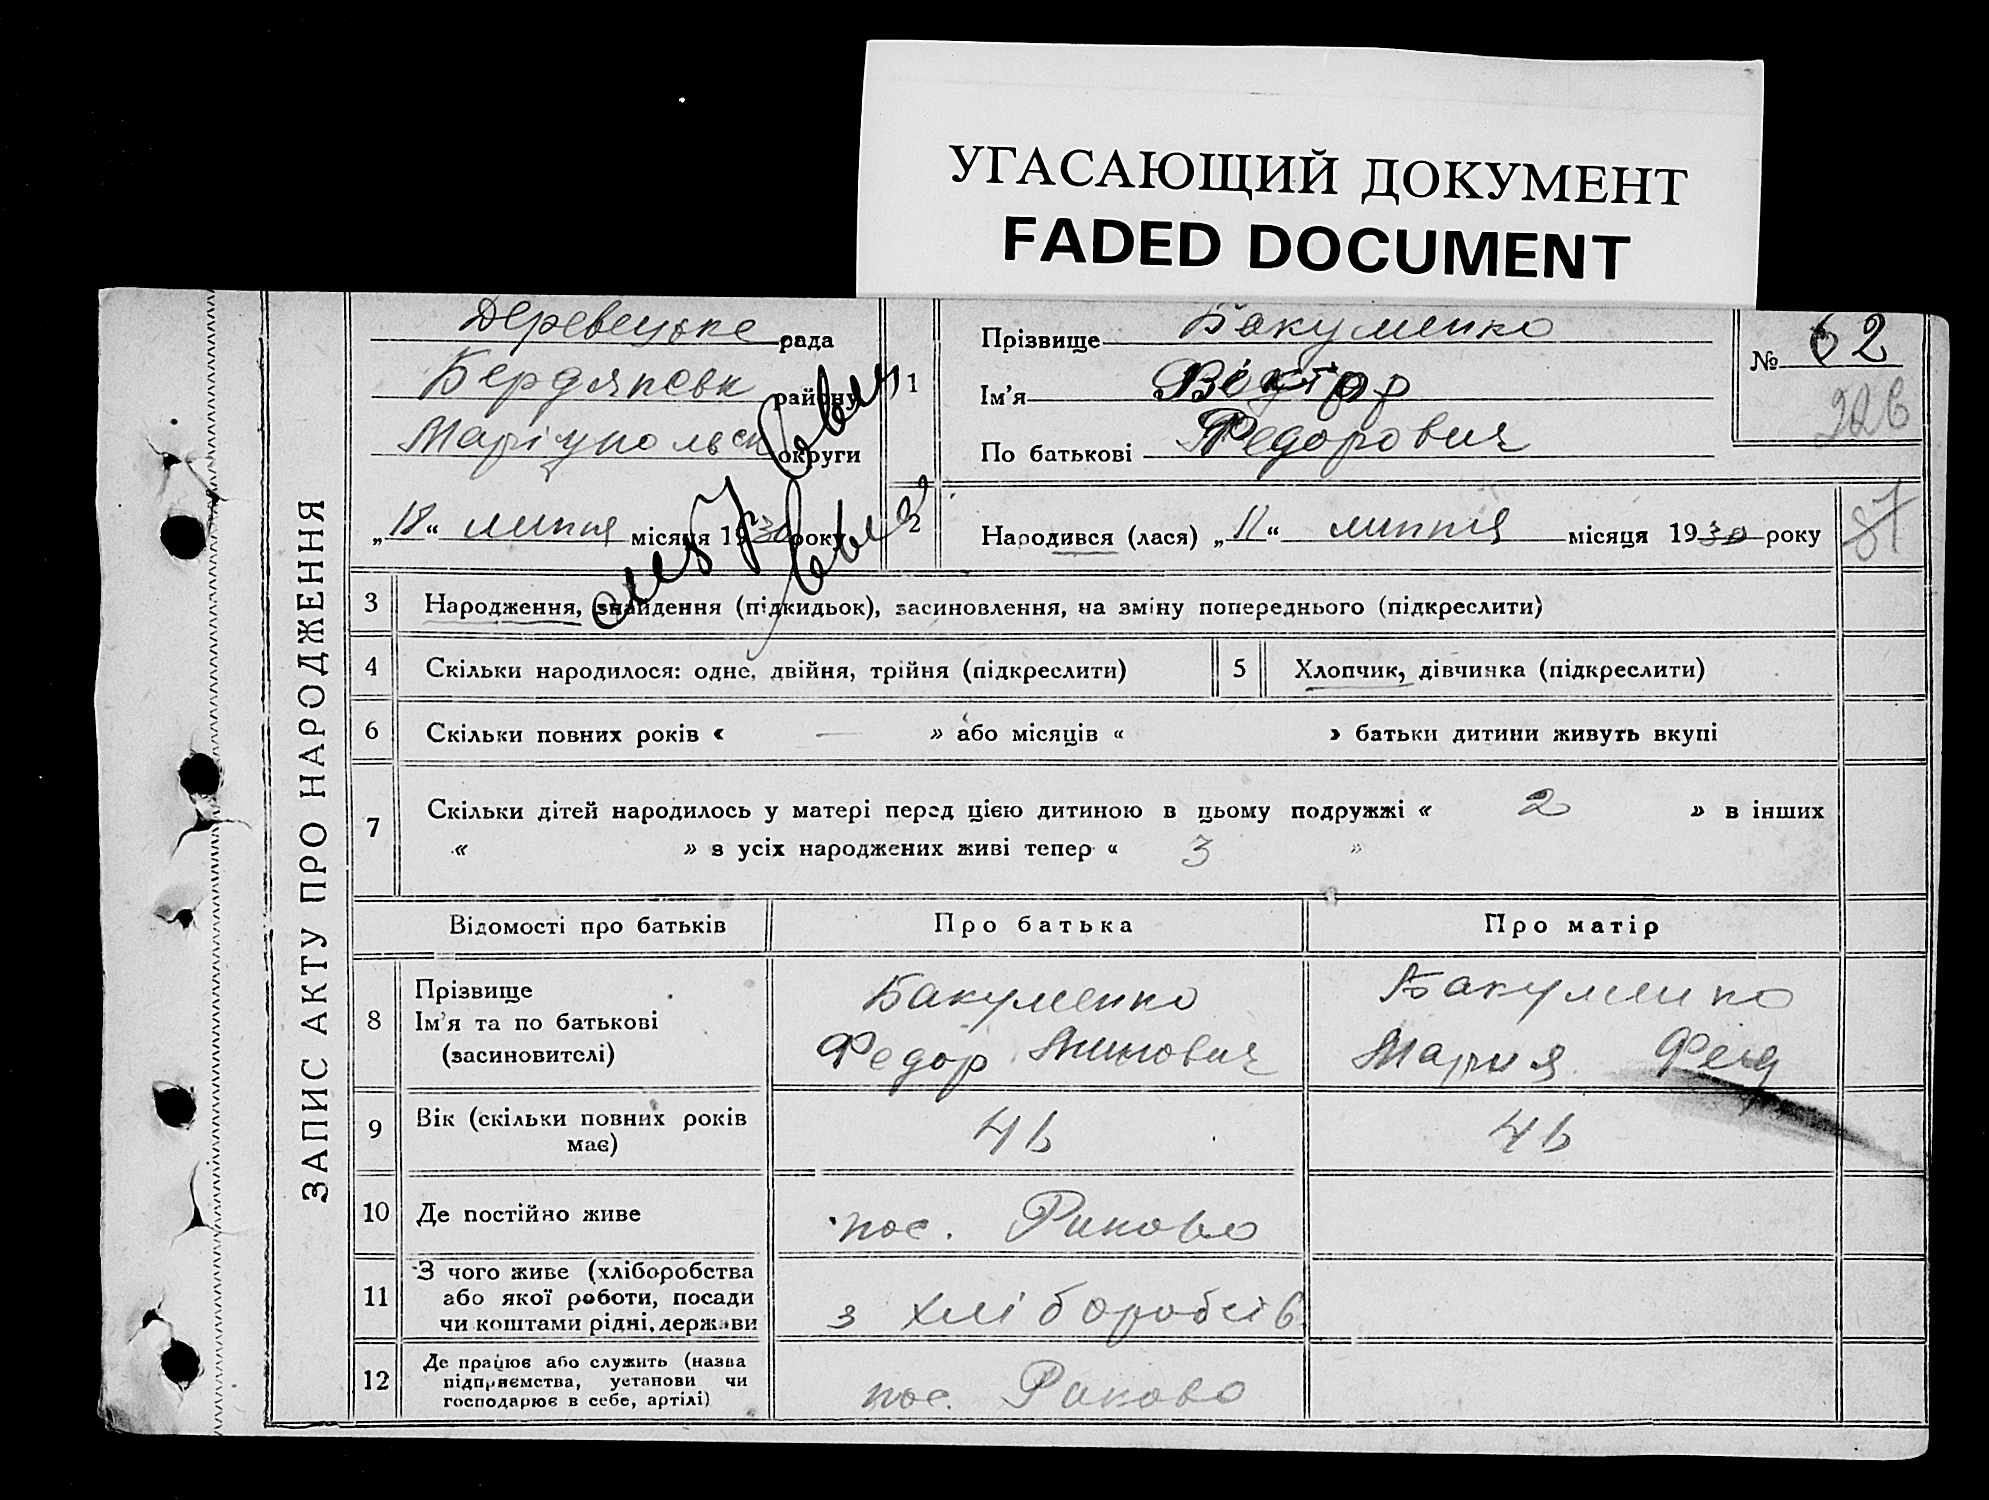 УГАСАЮЩИЙ ДОКУМЕНТ
FADED DOCUMENT
ЗАПИС АКТУ ПРО НАРОДЖЕННЯ
Деревецьке рада
Бердянськ району
Маріупольськ округи
„18“ липня місяця 1930 року
1
Прізвище Бакуменко
Ім’я Віктор
По батькові Федорович
№ 62
226
2
Народився (лася) „11“ липня місяця 1930 року
87
3 Народження, знайдення (підкидьок), засиновлення, на зміну попереднього (підкреслити)
4 Скільки народилося: одне, двійня, трійня (підкреслити)
5 Хлопчик, дівчинка (підкреслити)
6 Скільки повних років « — » або місяців « » батьки дитини живуть вкупі
7 Скільки дітей народилось у матері перед цією дитиною в цьому подружжі « 2 » в інших
« » в усіх народжених живі тепер « 3 »
Відомості про батьків Про батька Про матір
8 Прізвище
Ім’я та по батькові
(засиновителі)
Бакуменко
Федор
Бакуменко
Мария
9 Вік (скільки повних років
має)
46
46
10 Де постійно живе
пос.
11 З чого живе (хліборобства
або якої роботи, посади
чи коштами рідні, держави
з хліборобств
12 Де працює або служить (назва
підприємства, установи чи
господарює в себе, артілі)
пос.